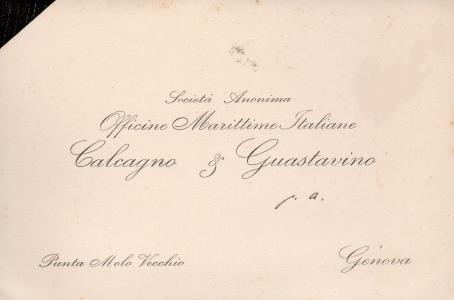 Società Anonima
Officine Marittime Italiane
Calcagno & Guastavino
p. a.
Punta Molo Vecchio
Genova